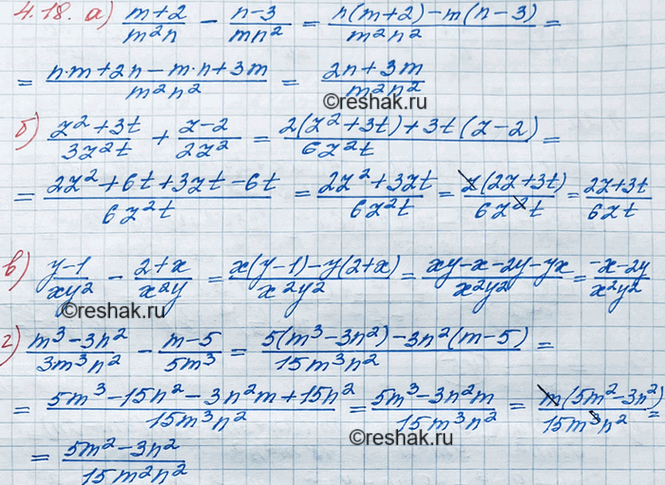 4.18. а) (m+2)/(m²n) − (n−3)/(mn²) = (n(m+2)−m(n−3))/(m²n²) =
= (n·m+2n−m·n+3m)/(m²n²) = (2n+3m)/(m²n²)
©reshak.ru
б) (z²+3t)/(3z²t) + (z−2)/(2z²) = (2(z²+3t)+3t(z−2))/(6z²t) =
= (2z²+6t+3zt−6t)/(6z²t) = (2z²+3zt)/(6z²t) = (z(2z+3t))/(6z²t) = (2z+3t)/(6zt)
в) (y−1)/(xy²) − (2+x)/(x²y) = (x(y−1)−y(2+x))/(x²y²) = (xy−x−2y−yx)/(x²y²) = (−x−2y)/(x²y²)
©reshak.ru
г) (m³−3n²)/(3m³n²) − (m−5)/(5m³) = (5(m³−3n²)−3n²(m−5))/(15m³n²) =
= (5m³−15n²−3n²m+15n²)/(15m³n²) = (5m³−3n²m)/(15m³n²) = (m(5m²−3n²))/(15m³n²) =
©reshak.ru
= (5m²−3n²)/(15m²n²)